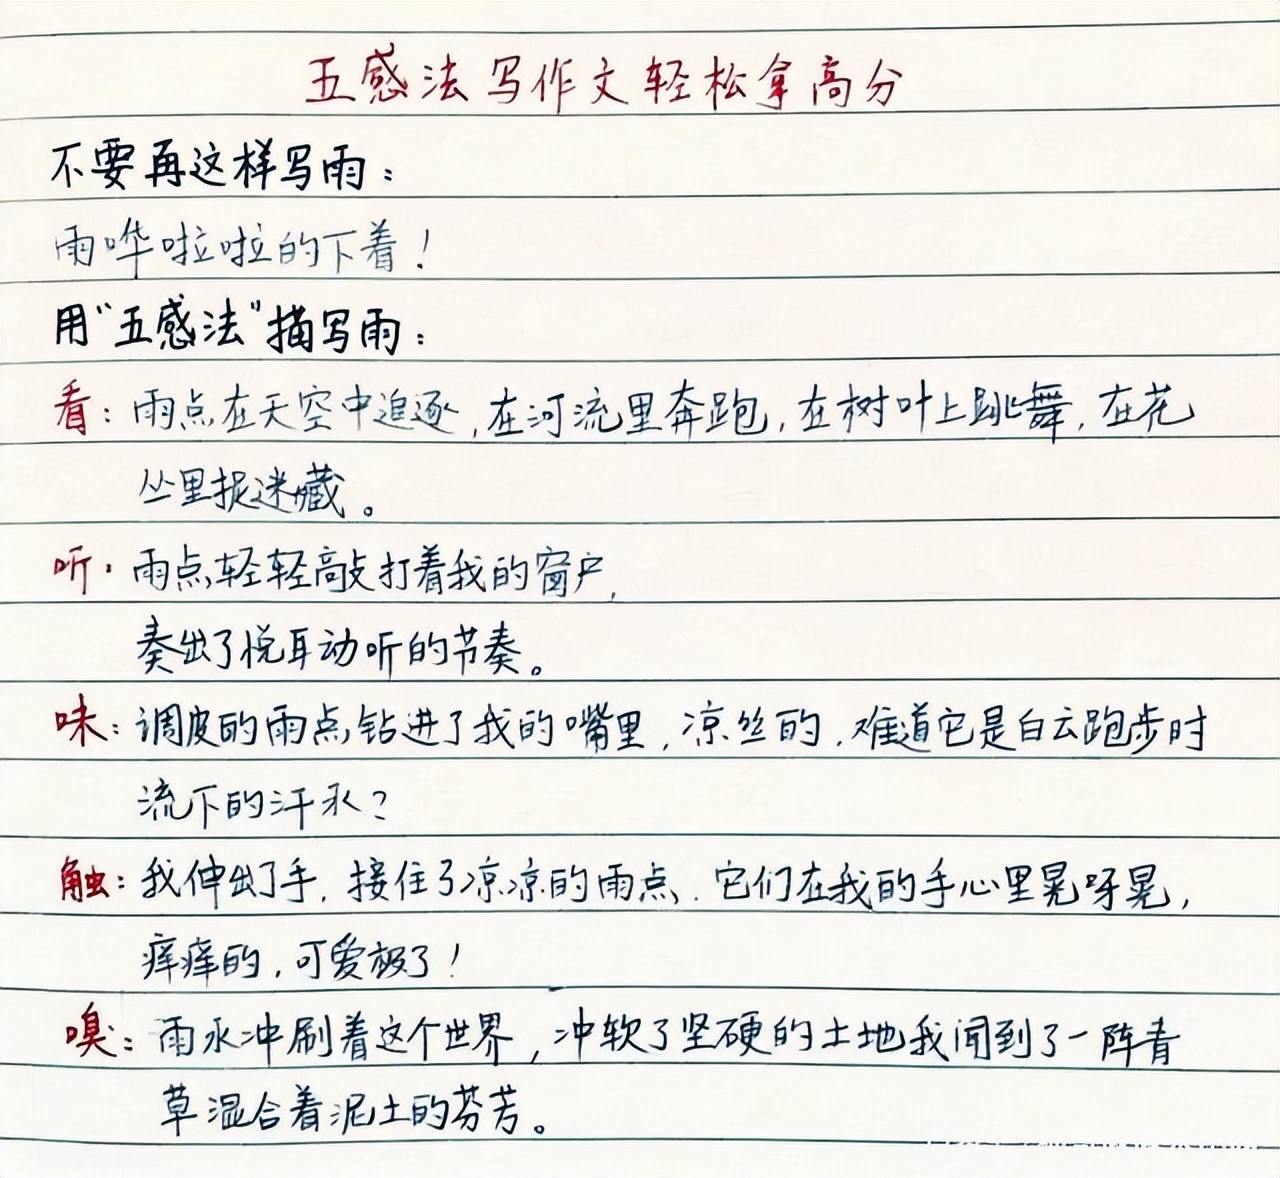 五感法写作文轻松拿高分
不要再这样写雨：
雨哗啦啦的下着！
用“五感法”描写雨：
看：雨点在天空中追逐，在河流里奔跑，在树叶上跳舞，在花
丛里捉迷藏。
听：雨点轻轻敲打着我的窗户，
奏出了悦耳动听的节奏。
味：调皮的雨点钻进了我的嘴里，凉丝的，难道它是白云跑步时
流下的汗水？
触：我伸出了手，接住了凉凉的雨点，它们在我的手心里晃呀晃，
痒痒的，可爱极了！
嗅：雨水冲刷着这个世界，冲软了坚硬的土地我闻到了一阵青
草混合着泥土的芬芳。